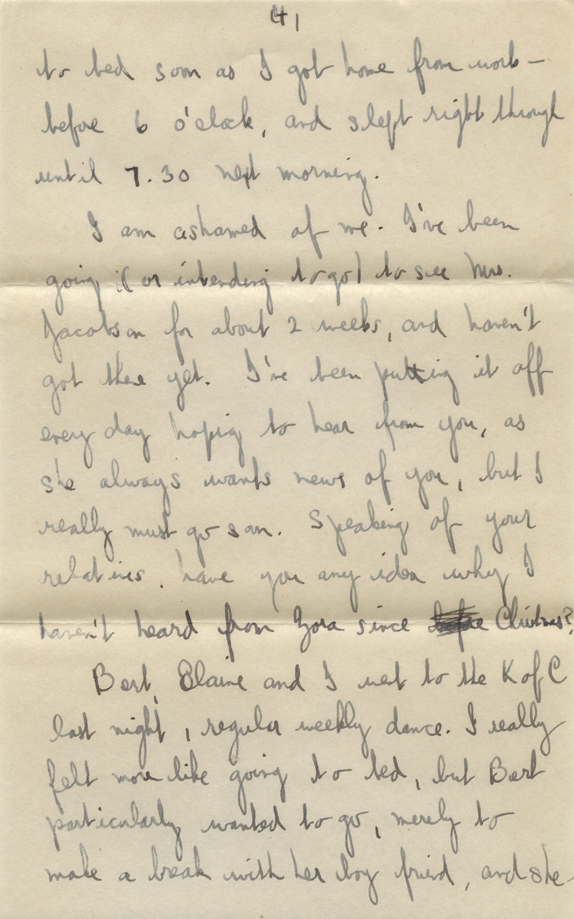 4)
to bed soon as I got home from work -
before 6 o'clock, and slept right through
until 7.30 next morning.
I am ashamed of me. I've been
going (or intending to go) to see Mrs.
Jacobson for about 2 weeks, and haven't
got there yet. I've been putting it off
every day hoping to hear from you, as
she always wants news of you, but I
really must go soon. Speaking of your
relatives, have you any idea why I
haven't heard from Zora since Christmas?
Bert, Elaine and I went to the K of C
last night, regular weekly dance. I really
felt more like going to bed, but Bert
particularly wanted to go, merely to
make a break with her boy friend, and she